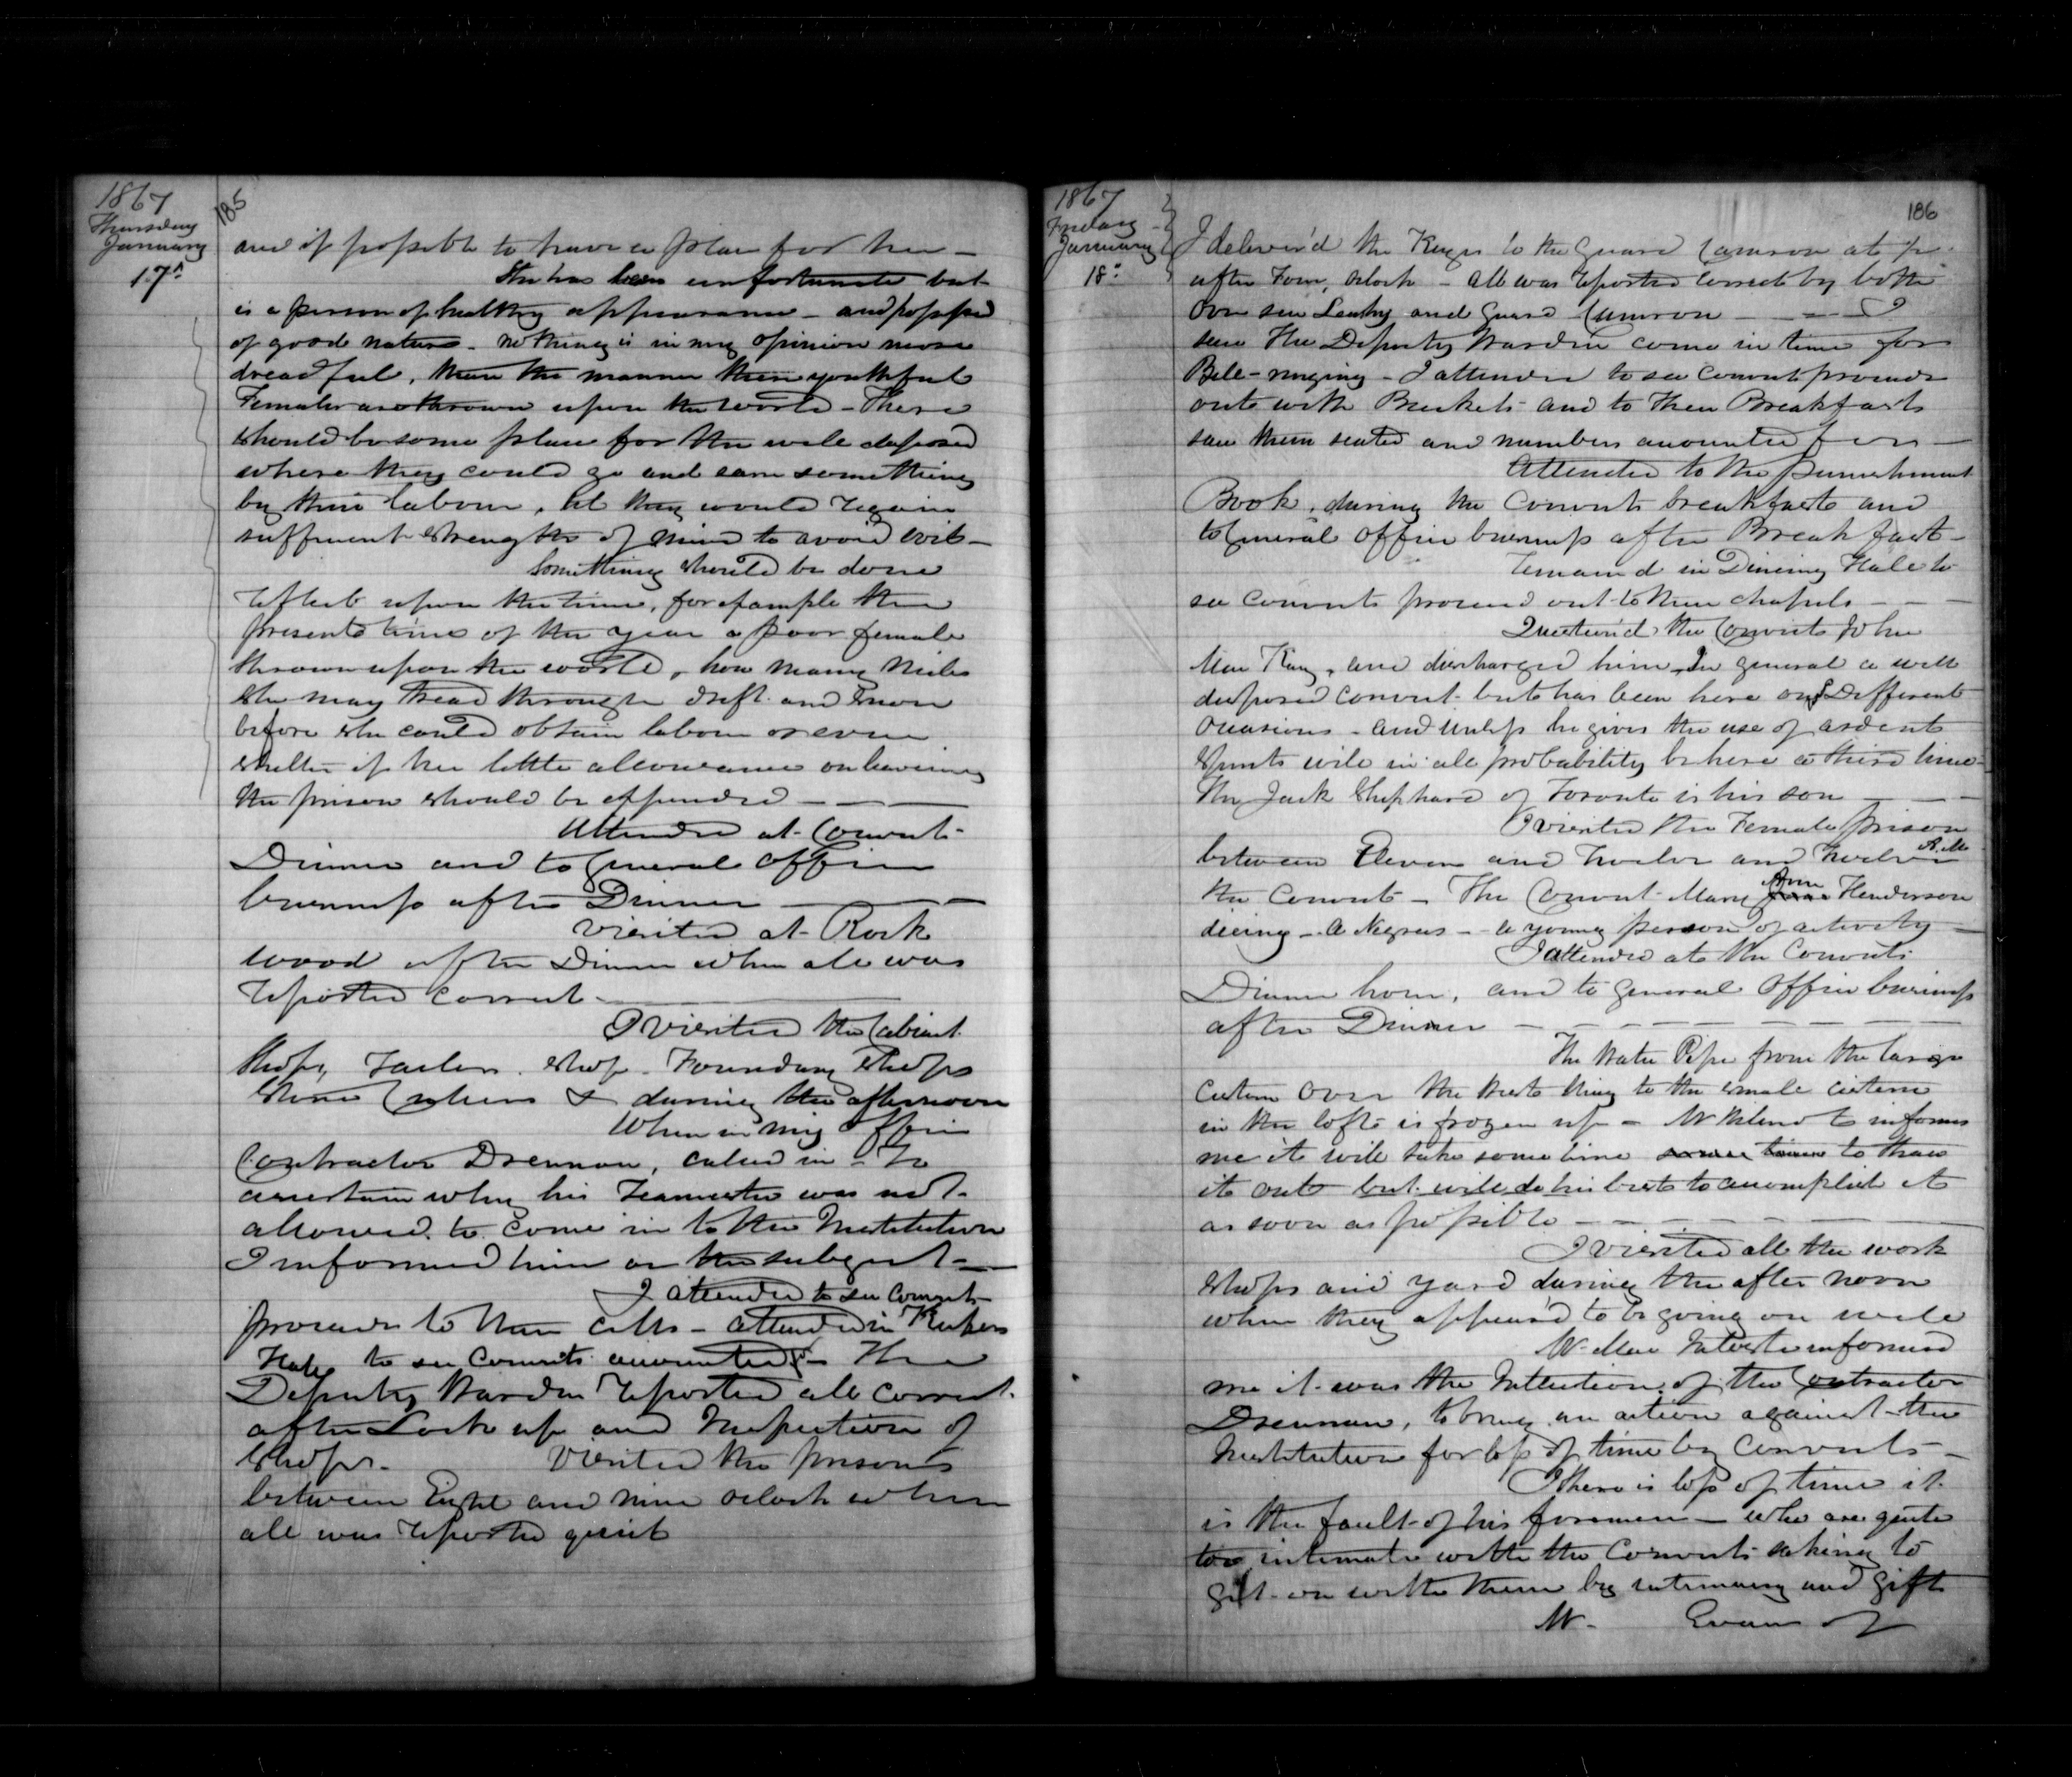 1867
Thursday
January
17th
185
and if possible to have a place for her —
She has been unfortunate but
is a person of healthy appearance — and possessed
of good nature — nothing is in my opinion more
dreadful, than the manner these youthful
Females are thrown upon the world — There
should be some place for the well disposed
where they could go and earn something
by their labour, til they would regain
sufficient strength of mind to avoid evil —
Something should be done
reflect upon the time, for example the
present time of the year a poor female
thrown upon the world, how many miles
she may tread through drift and snow
before she could obtain labour or even
shelter if her little allowance on leaving
the prison should be expended — — —
Attended at Convicts
Dinner and to General Office
business after Dinner — —
Visited at Rock
wood after Dinner when all was
reported correct —
I Visited the Cabinet
Shops, Tailors Shop — Foundry Shops
Stone Cutters & during the afternoon
When in my Office
Contractor Drennan, called in — To
ascertain why his Teamster was not
allowed to come in to the Institution
I informed him on the subject —
I attended to see Convicts
proceed to their cells — attended in Keepers
Hall to see Convicts accounted for — The
Deputy Warden reported all correct
after Lock up and Inspection of
Shops — Visited the prisons
between Eight and nine oclock when
all was reported quiet
1867
Friday
January
18th
186
I deliver'd the Keys to the Guard Cameron at
after Four, oclock — all was reported correct by both
Over seer Leahy and Guard Cameron — — I
saw The Deputy Warden come in time for
Bell-ringing — I attended to see Convicts proceed
out with Buckets and to their Breakfasts
saw them seated and numbers accounted for —
Attended to the Punishment
Book, during the Convicts breakfasts and
to General Office business after Breakfast —
remain'd in Dining Hall to
see Convicts proceed out to their chapels — — —
Question'd the Convict John
Mc Kay, and discharged him. In general a well
disposed convict but has been here on Different
occasions — and unless he gives the use of ardent
Spirits will in all probability be here a third time —
The Jack Shephard of Toronto is his son — —
I visited the Female prison
between Eleven and Twelve and Twelve
the Convicts — The Convict Mary Jane Ann Henderson
dieing — a Negress — a young person of activity —
I attended at the Convicts
Dinner hour, and to General Office business
after Dinner — — — — — — —
The Water Pipe from the large
Cistern over the West Wing to the small cistern
in the loft is frozen up — informs
me it will take some time some time to thaw
it out but will do his best to accomplish it
as soon as possible — — — — — —
I Visited all the work
shops and yard during the after noon
when they appear'd to be going on well
informed
me it was the Intention of the Contractor
Drennan, to bring an action against the
Institution for loss of time by Convicts —
If there is loss of time it
is the fault of his foremen — who are quite
too intimate with the Convicts seeking to
get on with them by intimacy and gift
Mr. Evans of